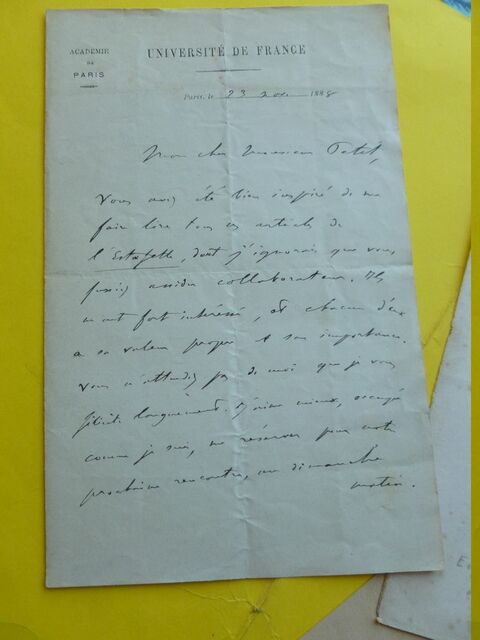 ACADEMIE
DE
PARIS
UNIVERSITÉ DE FRANCE
Paris, le 23 nov. 1888
Mon cher Monsieur
vous avez été bien inspiré de me
faire lire tous ces articles de
l'Estafette, dont j'ignorais que vous
fussiez assidu collaborateur. Ils
m'ont fort intéressé, et chacun d'eux
a sa valeur propre et son importance.
Vous n'attendez pas de moi que je vous
félicite longuement. J'aime mieux, occupé
comme je suis, me réserver pour notre
prochaine rencontre, un dimanche
matin.
E